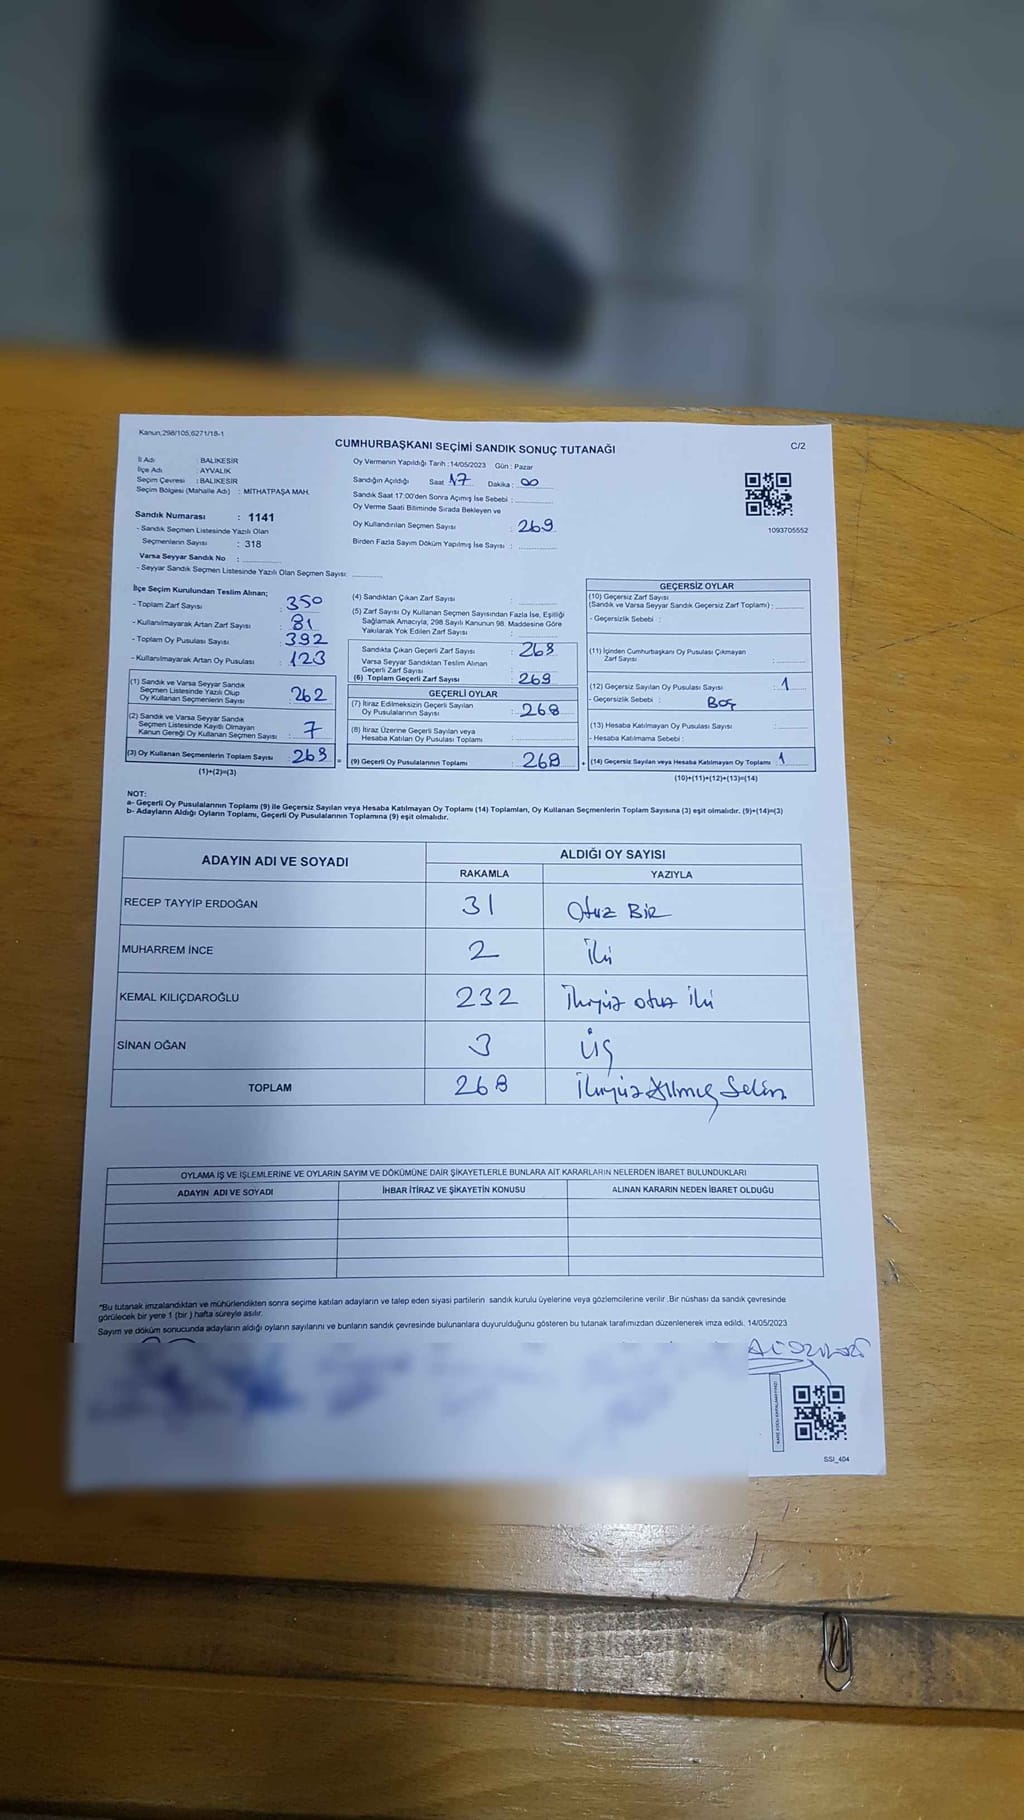 Kanun;298/105;6271/18-1
CUMHURBAŞKANI SEÇİMİ SANDIK SONUÇ TUTANAĞI
C/2
İl Adı : BALIKESİR
İlçe Adı : AYVALIK
Seçim Çevresi : BALIKESİR
Seçim Bölgesi (Mahalle Adı) : MİTHATPAŞA MAH.
Sandık Numarası : 1141
- Sandık Seçmen Listesinde Yazılı Olan
Seçmenlerin Sayısı : 318
Varsa Seyyar Sandık No :
- Seyyar Sandık Seçmen Listesinde Yazılı Olan Seçmen Sayısı:
Oy Vermenin Yapıldığı Tarih :14/05/2023 Gün : Pazar
Sandığın Açıldığı Saat 17 Dakika : 00
Sandık Saat 17:00'den Sonra Açımış İse Sebebi :
Oy Verme Saati Bitiminde Sırada Bekleyen ve
Oy Kullandırılan Seçmen Sayısı : 269
Birden Fazla Sayım Döküm Yapılmış İse Sayısı :
1093705552
İlçe Seçim Kurulundan Teslim Alınan;
- Toplam Zarf Sayısı : 350
- Kullanılmayarak Artan Zarf Sayısı : 81
- Toplam Oy Pusulası Sayısı : 392
- Kullanılmayarak Artan Oy Pusulası : 123
(1) Sandık ve Varsa Seyyar Sandık
Seçmen Listesinde Yazılı Olup
Oy Kullanan Seçmenlerin Sayısı : 262
(2) Sandık ve Varsa Seyyar Sandık
Seçmen Listesinde Kayıtlı Olmayan
Kanun Gereği Oy Kullanan Seçmen Sayısı : 7
(3) Oy Kullanan Seçmenlerin Toplam Sayısı : 269 =
(1)+(2)=(3)
(4) Sandıktan Çıkan Zarf Sayısı :
(5) Zarf Sayısı Oy Kullanan Seçmen Sayısından Fazla İse, Eşitliği
Sağlamak Amacıyla, 298 Sayılı Kanunun 98. Maddesine Göre
Yakılarak Yok Edilen Zarf Sayısı :
Sandıkta Çıkan Geçerli Zarf Sayısı : 269
Varsa Seyyar Sandıktan Teslim Alınan
Geçerli Zarf Sayısı :
(6) Toplam Geçerli Zarf Sayısı : 269
GEÇERLİ OYLAR
(7) İtiraz Edilmeksizin Geçerli Sayılan
Oy Pusulalarının Sayısı : 268
(8) İtiraz Üzerine Geçerli Sayılan veya
Hesaba Katılan Oy Pusulası Toplamı :
(9) Geçerli Oy Pusulalarının Toplamı : 268 +
GEÇERSİZ OYLAR
(10) Geçersiz Zarf Sayısı
(Sandık ve Varsa Seyyar Sandık Geçersiz Zarf Toplamı) :
- Geçersizlik Sebebi :
(11) İçinden Cumhurbaşkanı Oy Pusulası Çıkmayan
Zarf Sayısı :
(12) Geçersiz Sayılan Oy Pusulası Sayısı : 1
- Geçersizlik Sebebi : BOŞ
(13) Hesaba Katılmayan Oy Pusulası Sayısı :
- Hesaba Katılmama Sebebi :
(14) Geçersiz Sayılan veya Hesaba Katılmayan Oy Toplamı : 1
(10)+(11)+(12)+(13)=(14)
NOT:
a- Geçerli Oy Pusulalarının Toplamı (9) ile Geçersiz Sayılan veya Hesaba Katılmayan Oy Toplamı (14) Toplamları, Oy Kullanan Seçmenlerin Toplam Sayısına (3) eşit olmalıdır. (9)+(14)=(3)
b- Adayların Aldığı Oyların Toplamı, Geçerli Oy Pusulalarının Toplamına (9) eşit olmalıdır.
ADAYIN ADI VE SOYADI
ALDIĞI OY SAYISI
RAKAMLA YAZIYLA
RECEP TAYYİP ERDOĞAN 31 Otuz Bir
MUHARREM İNCE 2 İki
KEMAL KILIÇDAROĞLU 232 İkiyüz otuz iki
SİNAN OĞAN 3 Üç
TOPLAM 268 İkiyüz Altmış Sekiz
OYLAMA İŞ VE İŞLEMLERİNE VE OYLARIN SAYIM VE DÖKÜMÜNE DAİR ŞİKAYETLERLE BUNLARA AİT KARARLARIN NELERDEN İBARET BULUNDUKLARI
ADAYIN ADI VE SOYADI İHBAR İTİRAZ VE ŞİKAYETİN KONUSU ALINAN KARARIN NEDEN İBARET OLDUĞU
*Bu tutanak imzalandıktan ve mühürlendikten sonra seçime katılan adayların ve talep eden siyasi partilerin sandık kurulu üyelerine veya gözlemcilerine verilir .Bir nüshası da sandık çevresinde
görülecek bir yere 1 (bir ) hafta süreyle asılır.
Sayım ve döküm sonucunda adayların aldığı oyların sayılarını ve bunların sandık çevresinde bulunanlara duyurulduğunu gösteren bu tutanak tarafımızdan düzenlenerek imza edildi. 14/05/2023
SSI_404